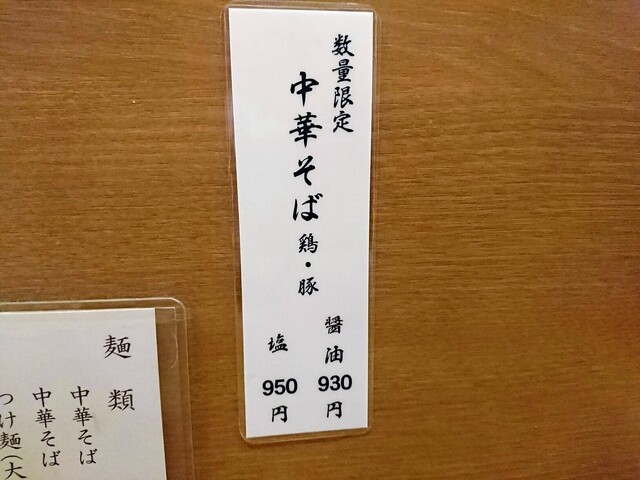 数量限定
中華そば 鶏・豚
醤油 930円
塩 950円
麺類
中華そば
中華そば
つけ麺(大